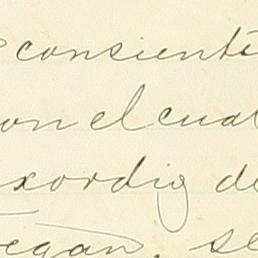 consienti
on el cual
xordig de
egan, se